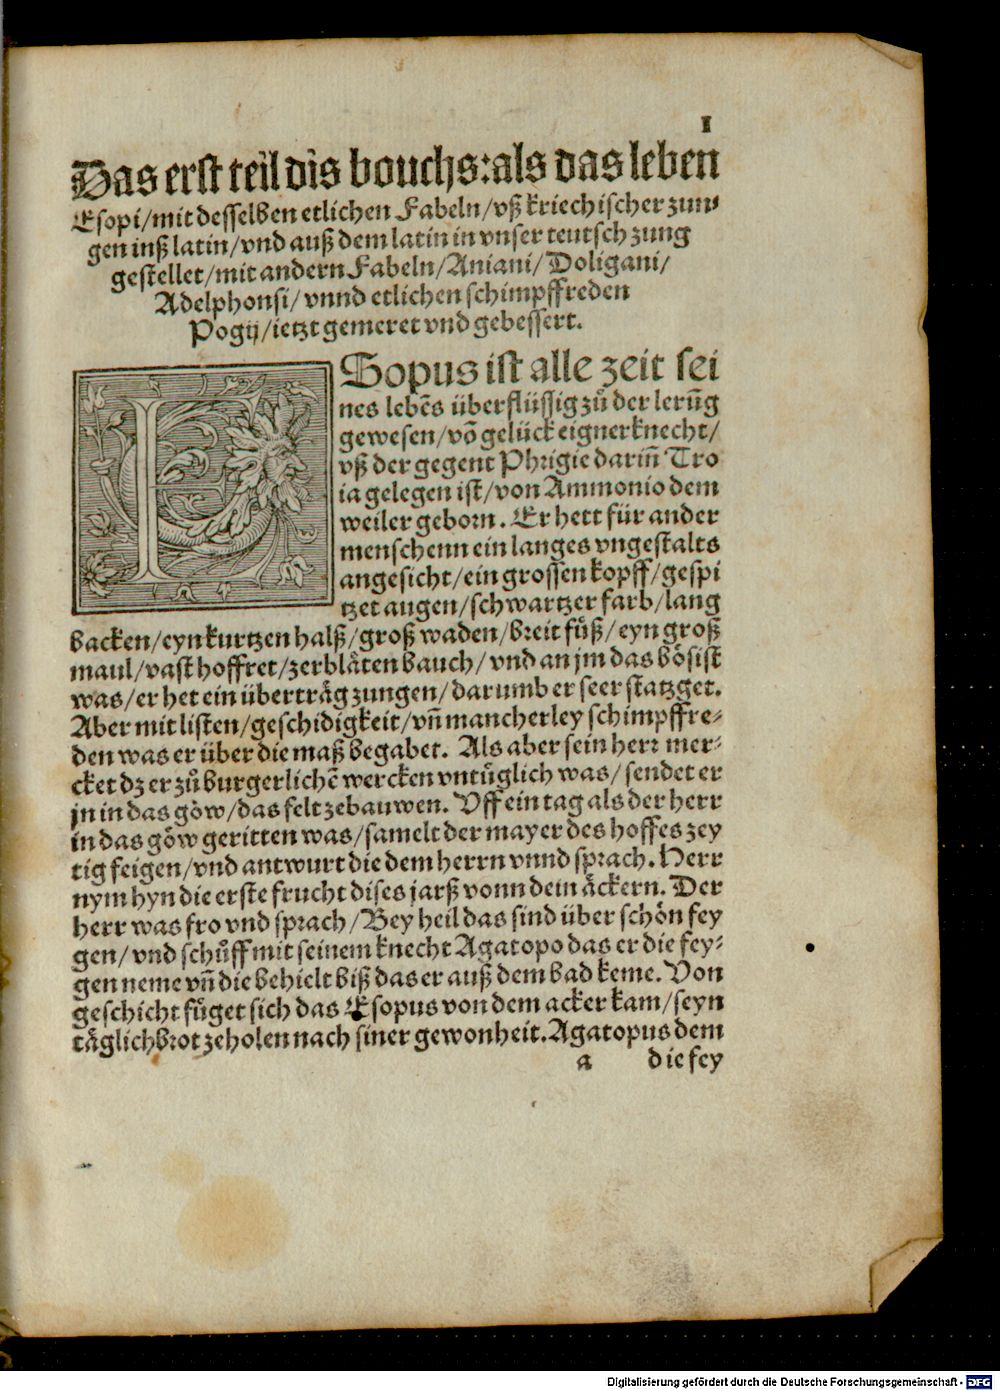 I
Das erst teil dis bouchs: als das leben
Esopi/mit desselben etlichen Fabeln/vß kriechischer zun⸗
gen inß latin/vnd auß dem latin in vnser teutsch zung
gestellet/mit andern Fabeln/Aniani/Doligani/
Adelphonsi/vnnd etlichen schimpffreden
Pogij/ietzt gemeret vnd gebessert.
ESopus ist alle zeit sei
nes lebēs überflüssig zů der lerūg
gewesen/vō gelück eigner knecht/
vß der gegent Phrigie dariñ Tro
ia gelegen ist/von Ammonio dem
weiler geborn. Er hett für ander
menschenn ein langes vngestalts
angesicht/ein grossen kopff/gespi
tzet augen/schwartzer farb/lang
backen/eyn kurtzen halß/groß waden/breit fůß/eyn groß
maul/vast hoffret/zerbläten bauch/vnd an jm das bösist
was/er het ein überträg zungen/darumb er seer statzget.
Aber mit listen/geschidigkeit/vñ mancherley schimpffre⸗
den was er über die maß begabet. Als aber sein herr mer⸗
cket dz er zů burgerlichē wercken vntüglich was/sendet er
jn in das göw/das felt zebauwen. Vff ein tag als der herr
in das göw geritten was/samelt der mayer des hoffes zey
tig feigen/vnd antwurt die dem herrn vnnd sprach. Herr
nym hyn die erste frucht dises jarß vonn dein äckern. Der
herr was fro vnd sprach/Bey heil das sind über schön fey
gen/vnd schůff mit seinem knecht Agatopo das er die fey⸗
gen neme vñ die behielt biß das er auß dem bad keme. Von
geschicht füget sich das Esopus von dem acker kam/seyn
täglichbrot zeholen nach siner gewonheit. Agatopus dem
a die fey
Digitalisierung gefördert durch die Deutsche Forschungsgemeinschaft - DFG